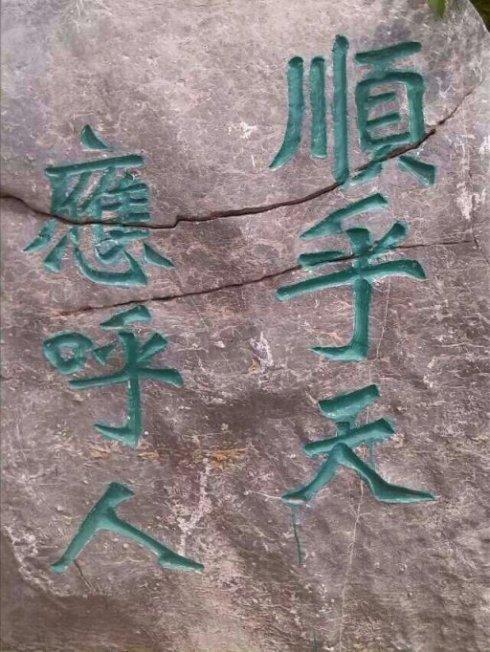 順乎天
應呼人